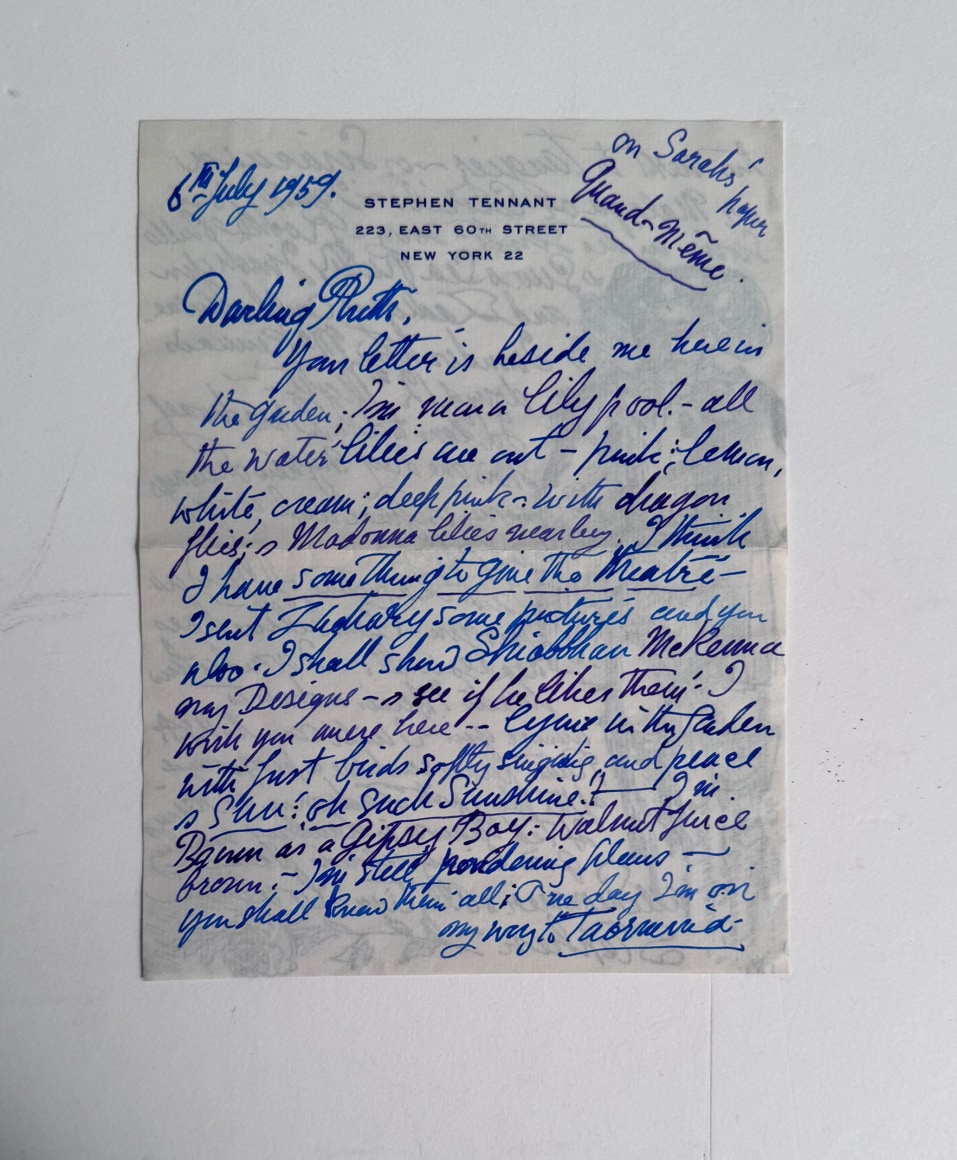 on Sarah's
paper
Quand-Même.
6th July 1959.
STEPHEN TENNANT
223, EAST 60TH STREET
NEW YORK 22
Darling Ruth,
Your letter is beside me here in
the garden; I'm near a lily pool. - all
the water lilies are out - pink; lemon,
white, cream; deep pink - with dragon
flies; & Madonna lilies nearby. I think
I have something to give the theatre -
I sent Zachary some pictures and you
also. I shall show Shiobhan McKenna
my Designs - & see if he likes them. I
wish you were here -- lying in the garden
with just birds softly singing, and peace
& Sun! oh such Sunshine! I'm
Brown as a Gipsy Boy: Walnut juice
brown. - I'm still pondering plans -
you shall know them all; One day I'm on
my way to Taormina.